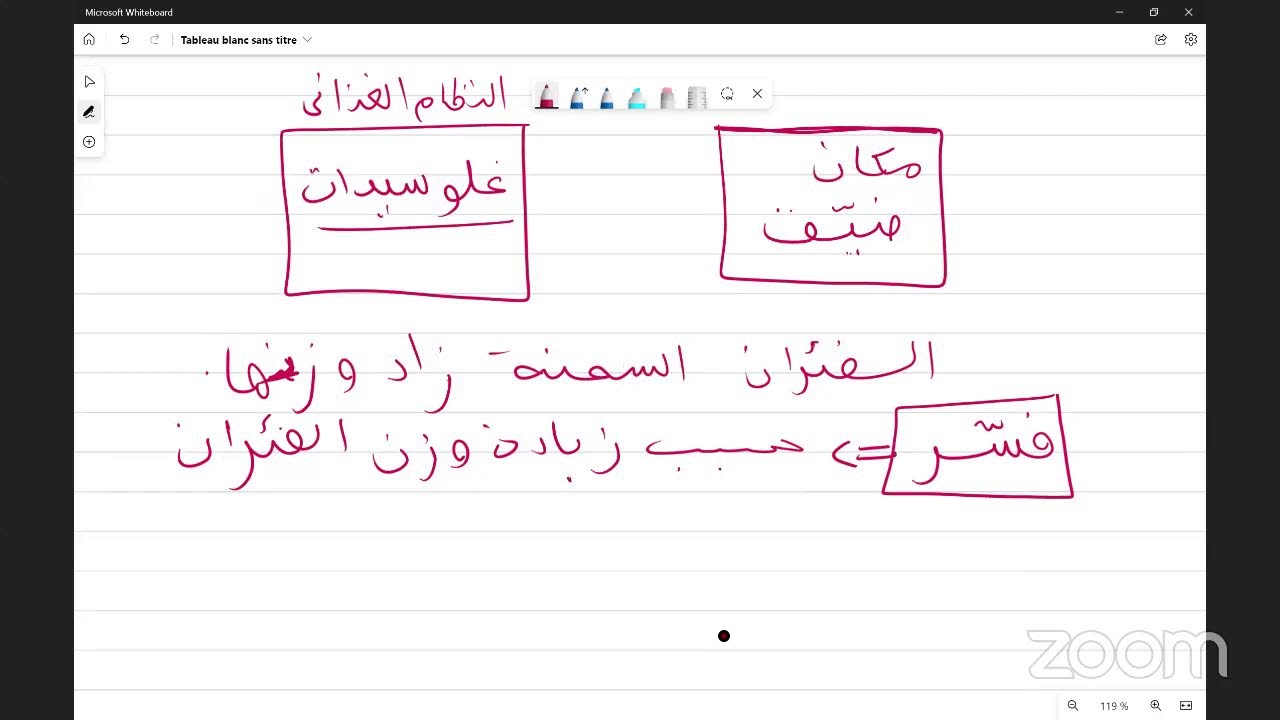 Microsoft Whiteboard
Tableau blanc sans titre
النظام الغذائي
غلوسيدات
مكان
ضيّق
الفئران السمنة زاد وزنها
فسّر => حسب زيادة وزن الفئران
zoom
119 %